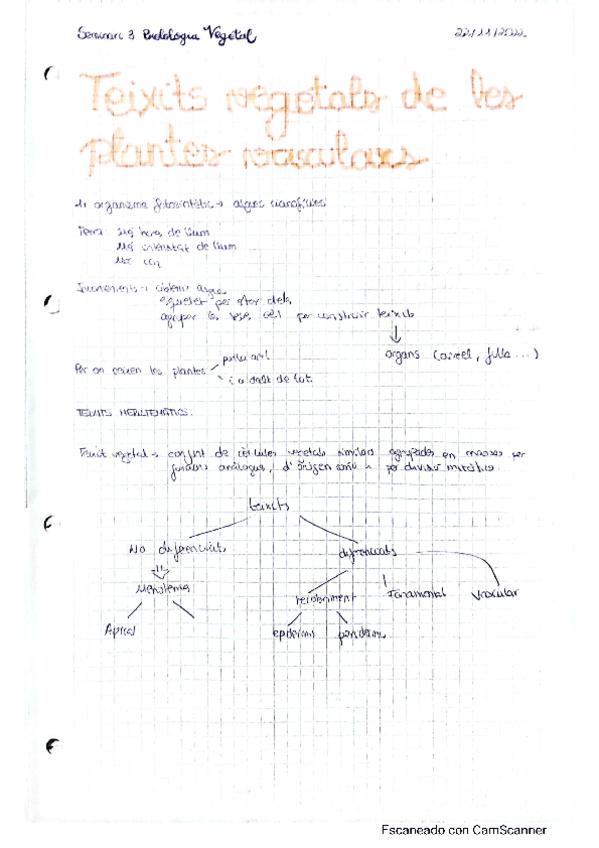 Seminari 3 Biologia Vegetal 22/11/2022
Teixits vegetals de les
plantes vasculars
1r organisme fotosintètic → algues cianofícies
Terra: Més hores de llum
Més intensitat de llum
Més CO2
Inconvenients → sistema
esquelet per
agrupar les cèl per construir teixits
organs (arrel, fulla ...)
Per on creixen les plantes
i a dalt de tot.
TEIXITS MERISTEMÀTICS.
Teixit vegetal → conjunt de cèl·lules vegetals similars agrupades en masses per
funcions anàlogues, d'origen comú i per divisió mitòtica.
teixits
No diferenciats diferenciats
Meristema
recobriment Fonamental Vascular
Apical epidermis peridermis
Escaneado con CamScanner